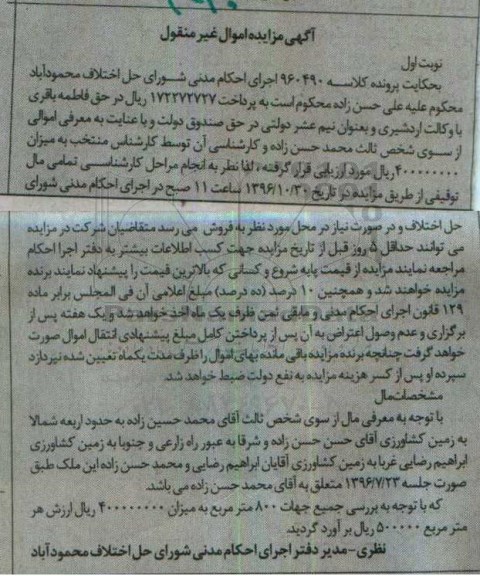 آگهی مزایده اموال غیر منقول
نوبت اول
بحکایت پرونده کلاسه ۹۶۰۴۹۰ اجرای احکام مدنی شورای حل اختلاف محمودآباد
محکوم علیه علی حسن زاده محکوم است به پرداخت ۱۷۲۲۷۲۷۲۷ ریال در حق فاطمه باقری
با وکالت اردشیری و بعنوان نیم عشر دولتی در حق صندوق دولت و با عنایت به معرفی اموالی
از سوی شخص ثالث محمد حسن زاده و کارشناسی آن توسط کارشناس منتخب به میزان
۴۰۰۰۰۰۰۰۰ ریال مورد ارزیابی قرار گرفته، لذا نظر به انجام مراحل کارشناسی تمامی مال
توقیفی از طریق مزایده در تاریخ ۱۳۹۶/۱۰/۳۰ ساعت ۱۱ صبح در اجرای احکام مدنی شورای
حل اختلاف و در صورت نیاز در محل مورد نظر به فروش می رسد متقاضیان شرکت در مزایده
می توانند حداقل ۵ روز قبل از تاریخ مزایده جهت کسب اطلاعات بیشتر به دفتر اجرا احکام
مراجعه نمایند مزایده از قیمت پایه شروع و کسانی که بالاترین قیمت را پیشنهاد نمایند برنده
مزایده خواهند شد و همچنین ۱۰ درصد (ده درصد) مبلغ اعلامی آن فی المجلس برابر ماده
۱۲۹ قانون اجرای احکام مدنی و مابقی ثمن ظرف یک ماه اخذ خواهد شد و یک هفته پس از
برگزاری و عدم وصول اعتراض به آن پس از پرداختن کامل مبلغ پیشنهادی انتقال اموال صورت
خواهد گرفت چنانچه برنده مزایده باقی مانده بهای اموال را ظرف مدت یکماه تعیین شده نپردازد
سپرده او پس از کسر هزینه مزایده به نفع دولت ضبط خواهد شد.
مشخصات مال
با توجه به معرفی مال از سوی شخص ثالث آقای محمد حسین زاده به حدود اربعه شمالا
به زمین کشاورزی آقای حسن حسن زاده و شرقا به عبور راه زارعی و جنوبا به زمین کشاورزی
ابراهیم رضایی غربا به زمین کشاورزی آقایان ابراهیم رضایی و محمد حسن زاده این ملک طبق
صورت جلسه ۱۳۹۶/۷/۲۳ متعلق به آقای محمد حسن زاده می باشد.
که با توجه به بررسی جمیع جهات ۸۰۰ متر مربع به میزان ۴۰۰۰۰۰۰۰۰ ریال ارزش هر
متر مربع ۵۰۰۰۰۰ ریال بر آورد گردید.
نظری - مدیر دفتر اجرای احکام مدنی شورای حل اختلاف محمودآباد